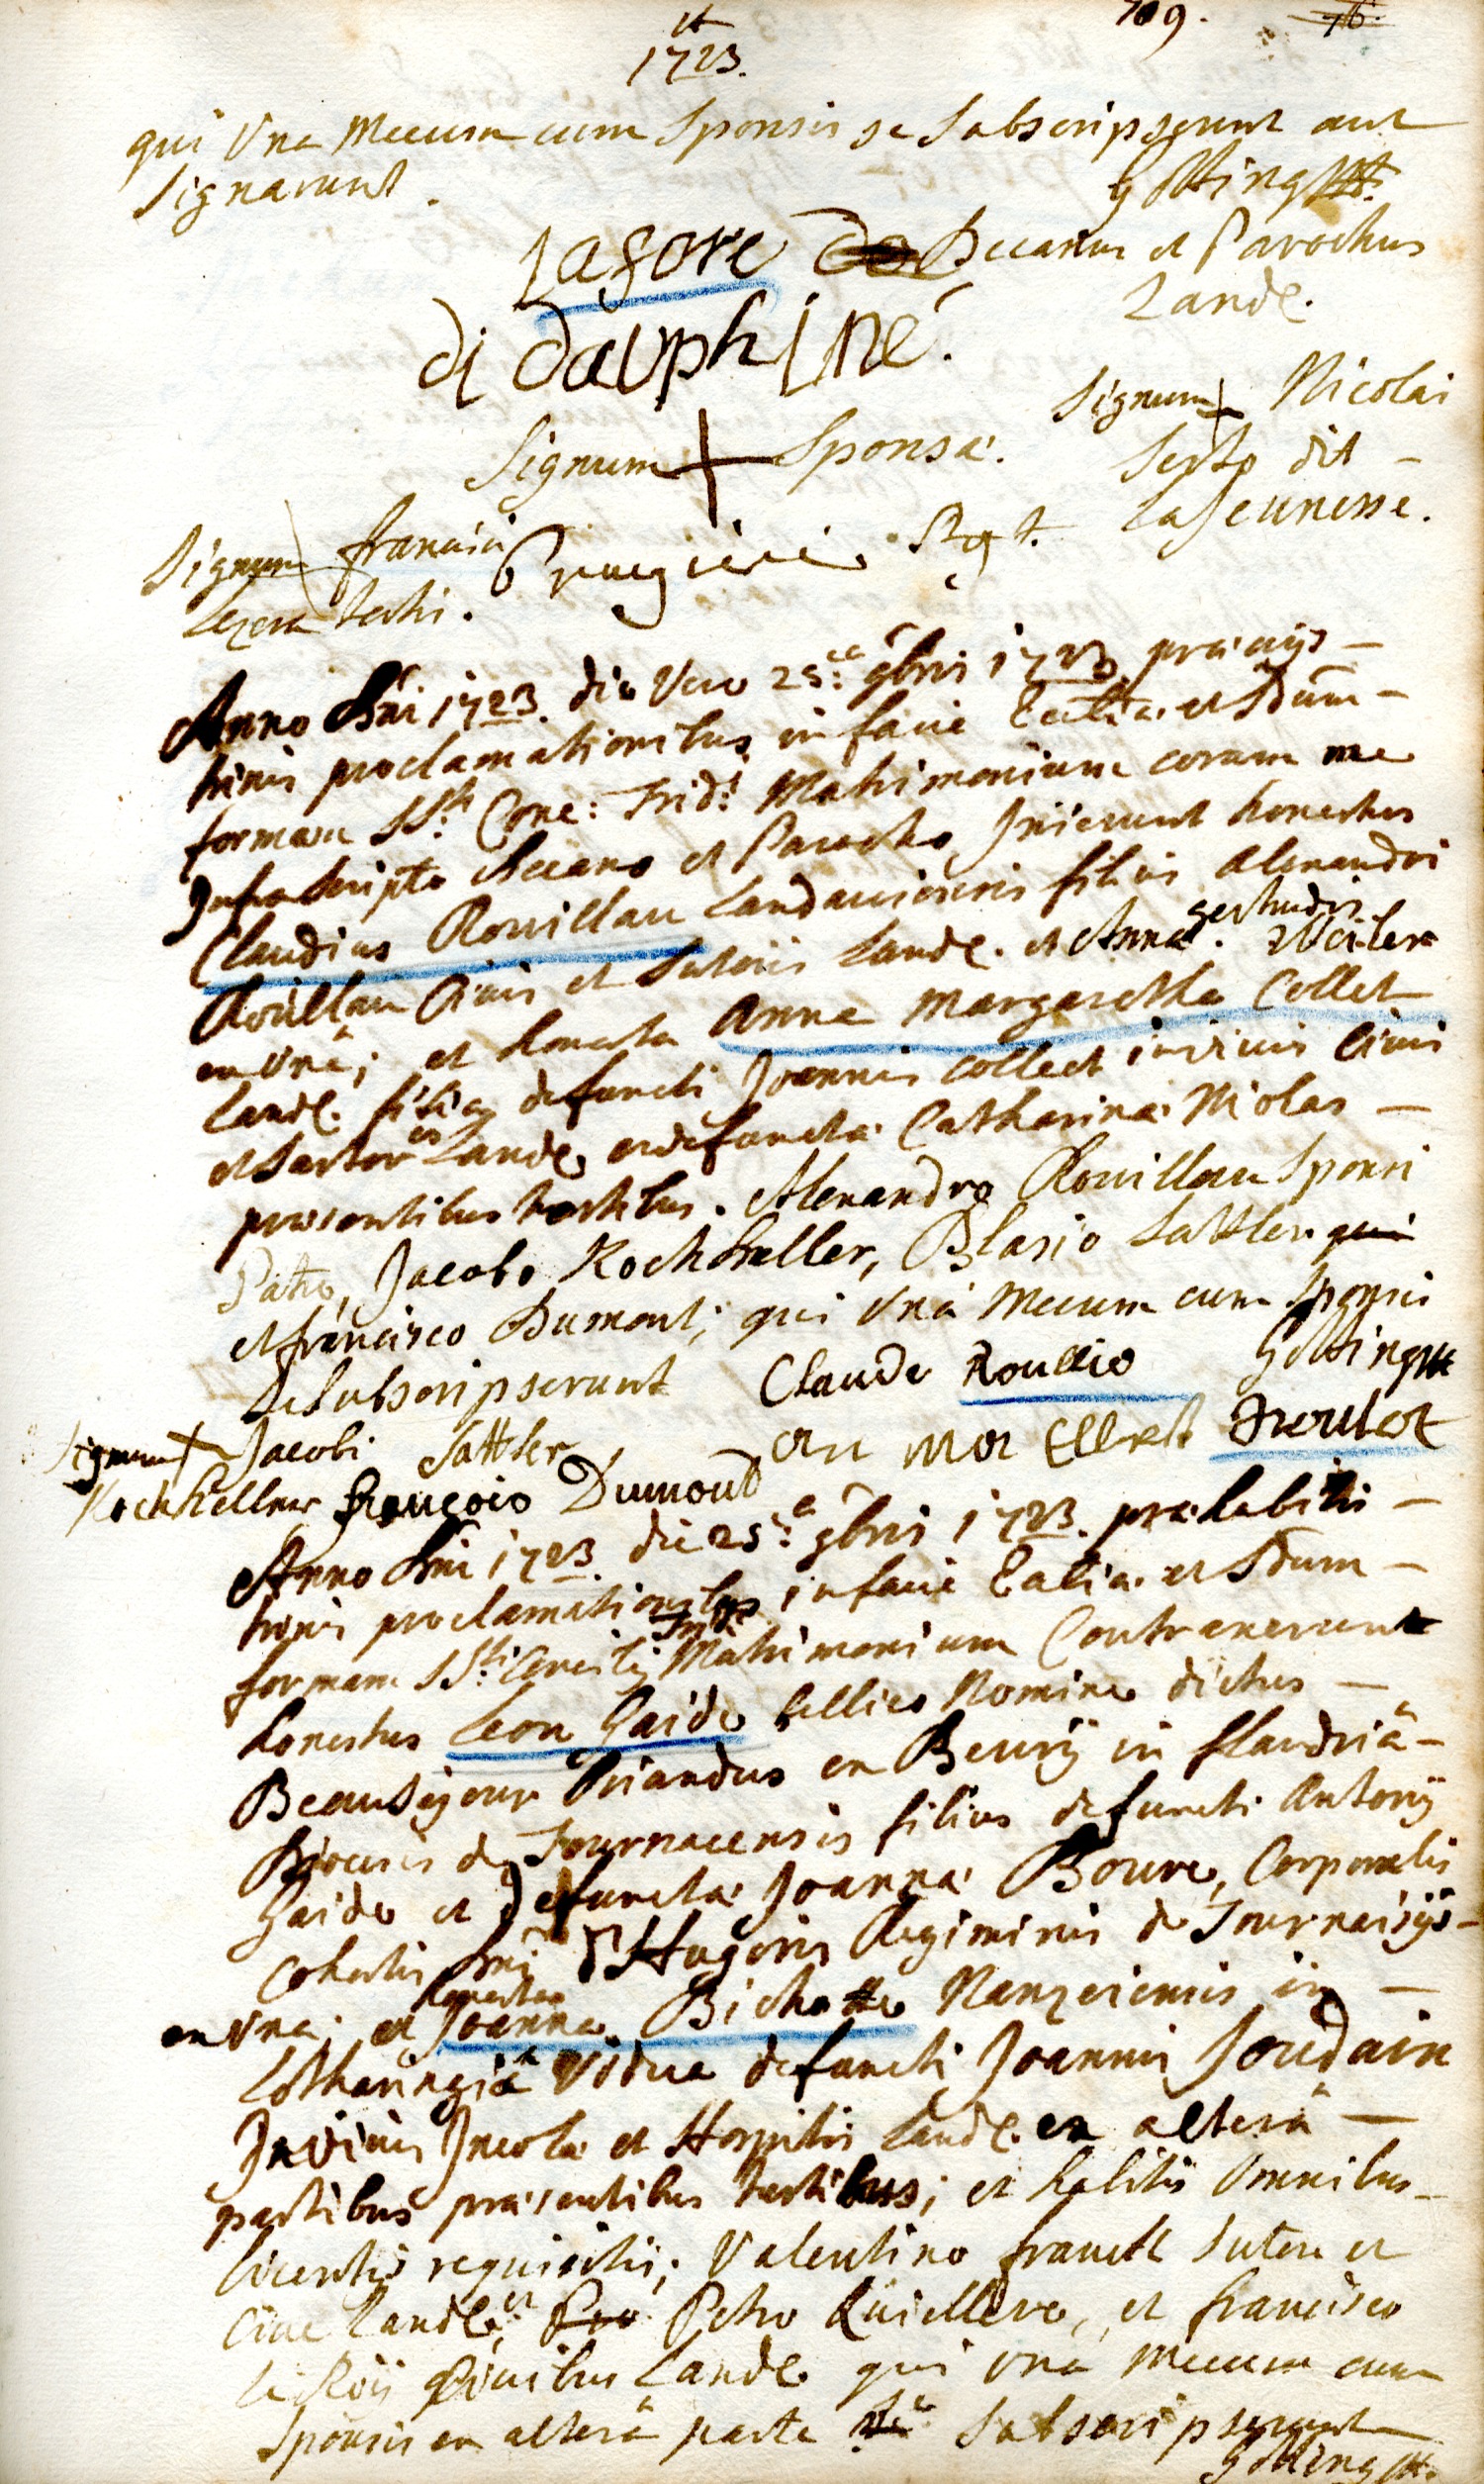 et
1723.
109. 76.
qui Una Mecum cum Sponsis se Subscripserunt aut
Signarunt.
Götting
Lafore Decanus et Parochus
Landę.
di dauphiné.
Signum + Nicolai
Signum + Sponsæ.
dit -
LaJeunesse.
Signum francisci
testis.
Anno Dni 1723. die Vero 25ta 9bris 1723. præviis -
trinis proclamationibus in facie Eccliæ et Sdum -
formam SSti Conc: Trid: Matrimonium coram me
Infrascripto Decano et Parocho Inierunt honestus
Claudius Rouillau Landaviensis filius Alexandri
Rouillau Civis et Sutoris Landę. et Annæ gertrudis Weiler
ex Unâ; et honesta Anna Margaretha Collet
Landę. filia defuncti Joannis Collet in vivis Civis
et Sartoris Landę et defunctæ Catharinæ Niolas -
præsentibus testibus. Alexandro Rouillau Sponsi
Patre, Jacobo Kochkeller, Blasio Sattler qui
et francisco Dumont; qui Unâ Mecum cum Sponsis
se Subscripserunt Claude Roullio Götting
Signum + Jacobi Sattler an Mar Elleh
Kochkeller françois Dumont
Anno Dni 1723. die 25ta 9bris 1723. præhabitis -
trinis proclamationibus in facie Ecclia et Sdum -
formam SSti Concilij Trid. Matrimonium Contraxerunt
honestus Leon Gaide bellico Nomine dictus -
Beausejour oriundus ex Beury in flandriâ -
Diœcesis de Tournacensis filius defuncti Antonij
Gaide et defunctæ Joannæ Boure, Corporalis
Cohortis Dni d'Hugonis Regiminis de Tournaisijs -
ex Una; et honesta Joanna Bichatte Nanzeiensis in -
Lotharingiâ Vidua defuncti Joannis Joudain
In vivis Incolæ et Hospitis Landę. ex alterâ -
partibus præsentibus testibus; et habitis omnibus -
licentijs requisitis; Valentino franck Sutore et
Cive Landę; et Petro Quiellere, et francisco
le Roÿ Civibus Landę qui una Mecum cum
Sponsis ex alterâ parte Subscripserunt
Götting